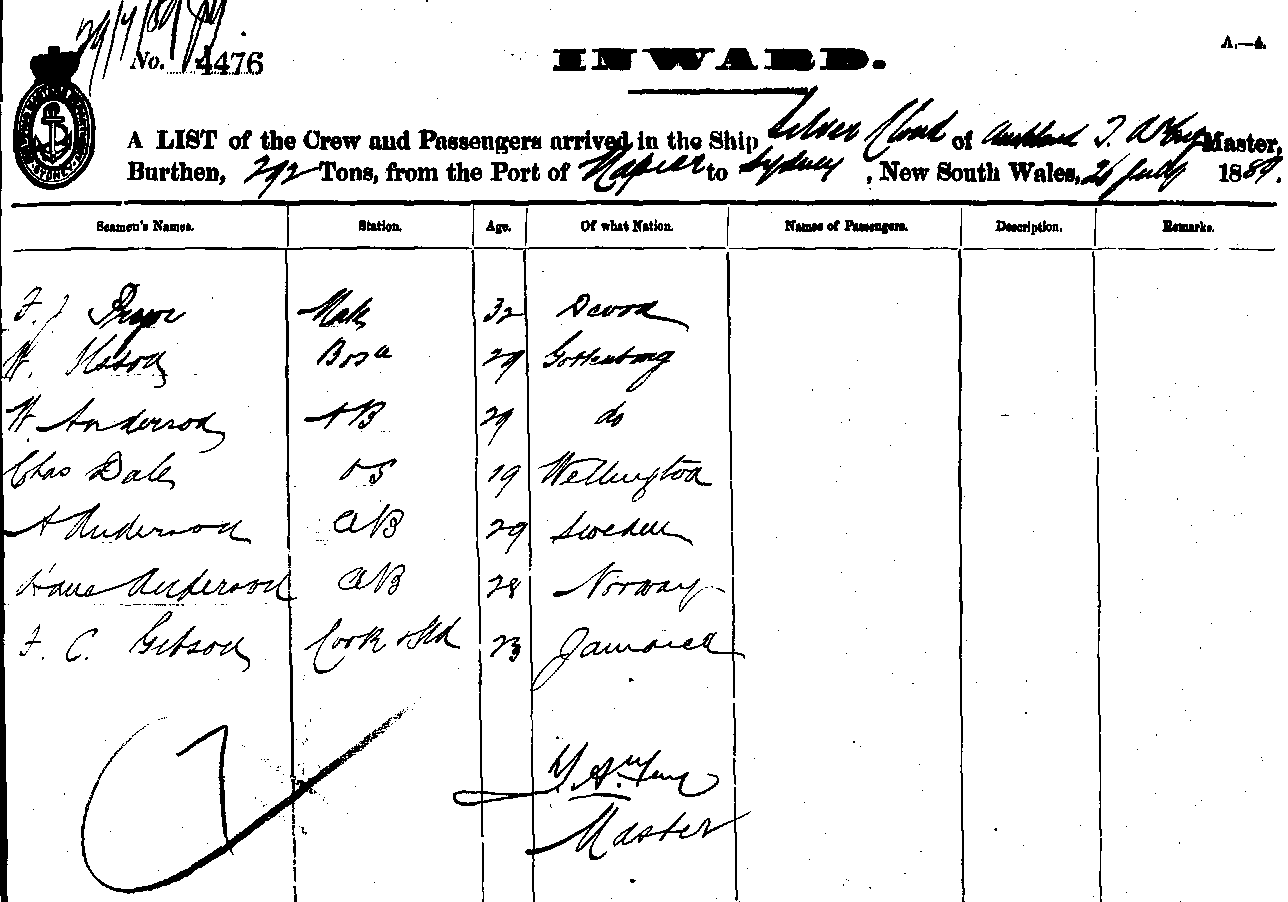 29/7/89
No. 4476
INWARD.
A.—4.
A LIST of the Crew and Passengers arrived in the Ship Silver Cloud of Auckland Master,
Burthen, 292 Tons, from the Port of Napier to Sydney, New South Wales, 26 July 1889.
Seamen's Names. Station. Age. Of what Nation. Names of Passengers. Description. Remarks.
F. J. Mate 32 Devon
W. Bosn 29 Gothenburg
W. Anderson AB 29 do
Chas Dale OS 19 Wellington
A Anderson AB 29 Sweden
Hans Anderson AB 28 Norway
F. C. Gibson Cook & Std 23 Jamaica
7
Master